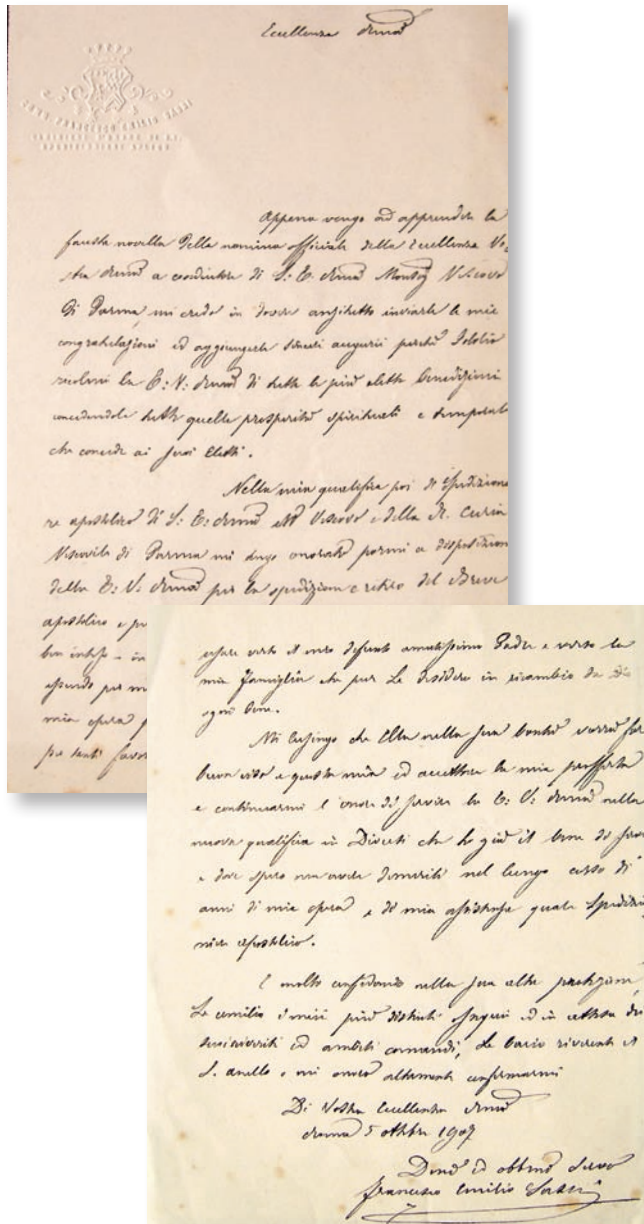 Eccellenza Rma
COMM. FRANCESCO EMILIO SASSI
SPEDIZIONIERE APOSTO
Appena vengo ad apprendere la
fausta novella della nomina officiale della Eccellenza Vo
stra Rma a coadiutore di S: E. Rma Monsig Vescovo
di Parma, mi credo in dovere anzitutto inviarle le mie
congratulazioni ed aggiungerle sinceri augurii perchè Iddio
ricolmi la E: V: Rma di tutte le più elette benedizioni
concedendole tutte quelle prosperità spirituali e temporali
che concede ai suoi Eletti.
Nella mia qualifica poi di Spedizione
re apostolico di S: E: Rma M Vescovo e della R. Curia
Vescovile di Parma mi tengo onorato pormi a disposizione
della E: V: Rma per la spedizione e ritiro del Breve
apostolico e p
ben inteso - in
essendo per m
mia opera p
pe tanti favor
usare verso il mio defunto amatissimo Padre e verso la
mia famiglia che pur Le desidera in ricambio da Dio
ogni bene.
Mi lusingo che Ella nella sua bontà vorrà far
buon viso a questa mia ed accettare la mia profferta
e continuarmi l'onore di servire la E: V: Rma nella
nuova qualifica in Diocesi che ho già il bene di serv
e dove spero non avere demeriti nel lungo corso di
anni di mia opera e di mia assistenza quale Spedizi
niere apostolico.
E molto confidando nella sua alta protezione,
Le umilio i miei più distinti ossequi ed in attesa dei
suoi riveriti ed ambiti comandi, Le bacio riverente il
S. anello e mi onoro altamente confermarmi
Di Vostra Eccellenza Rma
Roma 5 ottbre 1907
Devmo ed obbmo Servo
Francesco Emilio Sassi